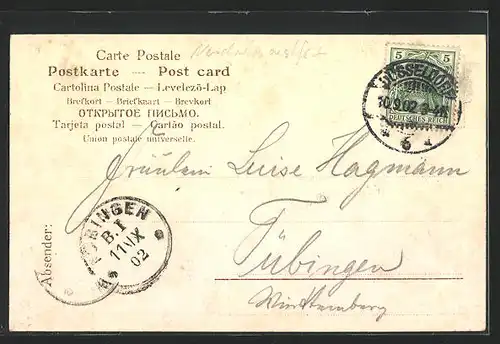 Carte Postale
Postkarte — Post card
Cartolina Postale – Levelező-Lap
Brefkort – Briefkaart – Brevkort
ОТКРЫТОЕ ПИСЬМО.
Tarjeta postal – Cartão postal.
Union postale universelle.
5 5
DEUTSCHES REICH
DÜSSELDORF
10.9.02
6
Fräulein Luise Hagmann
Tübingen
Württemberg
TÜBINGEN
B.I
11 IX
02
Absender: